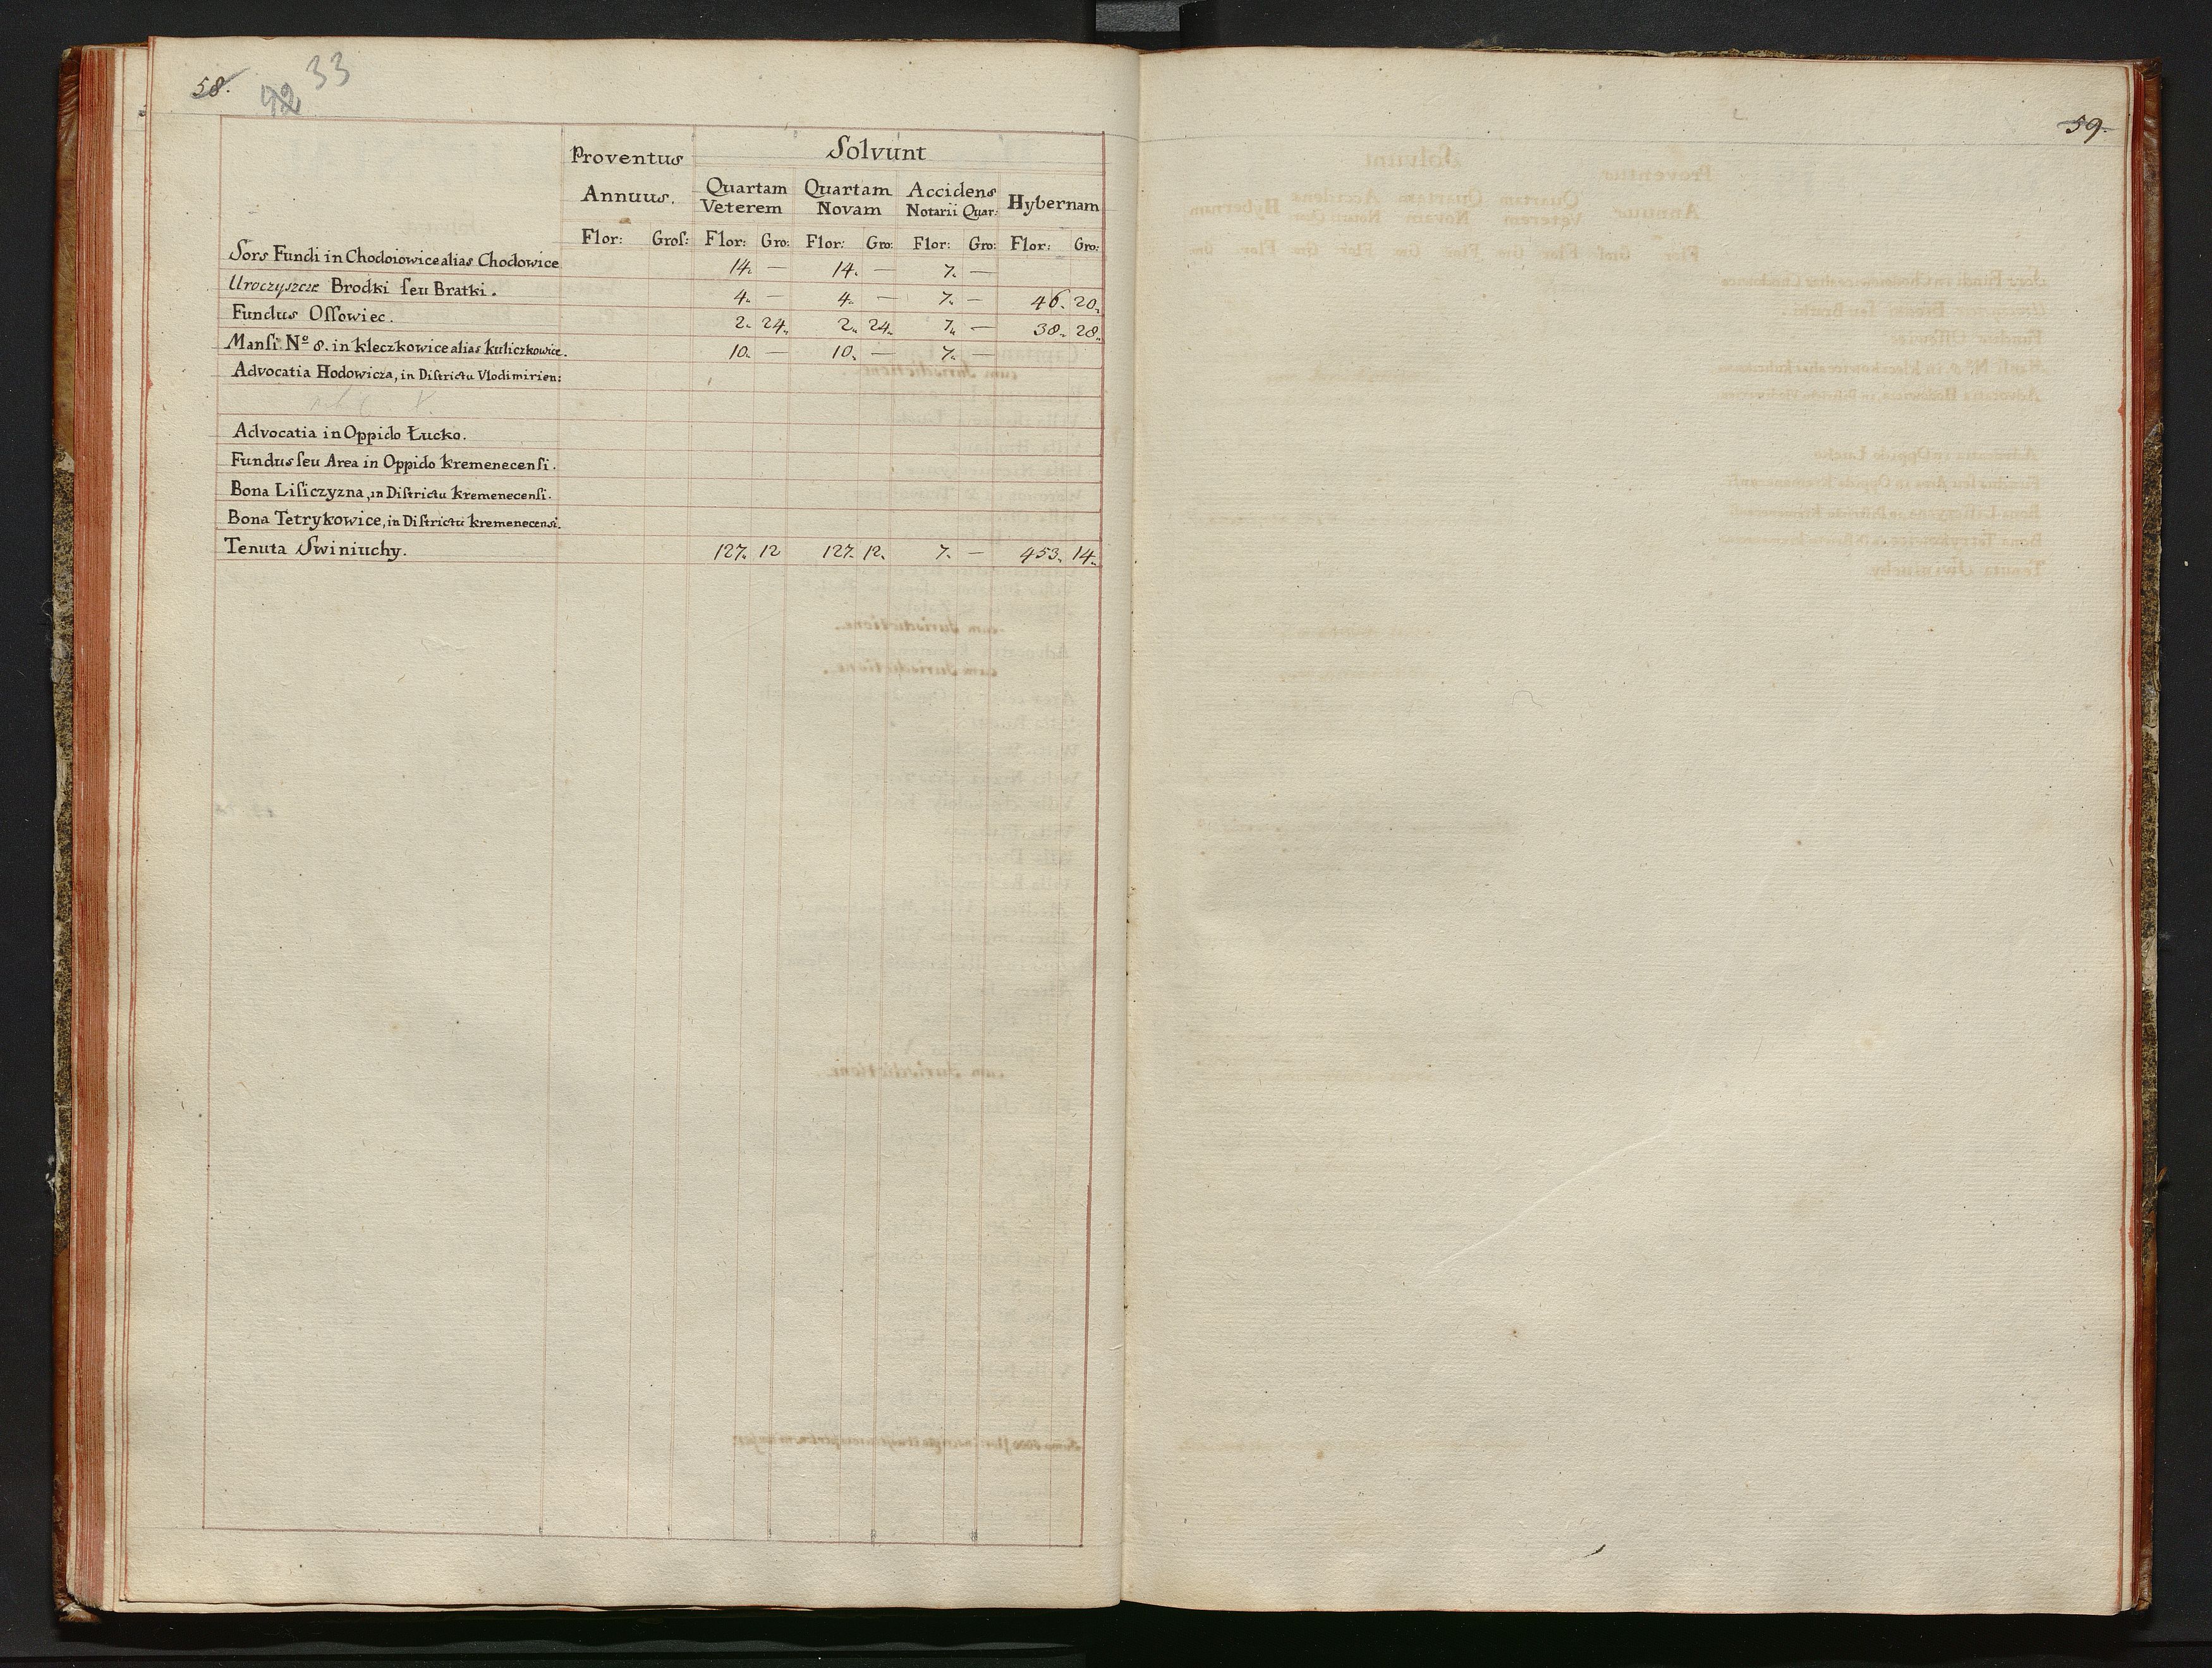 58.
42 33
Solvunt
Proventus Annuus.
Quartam Veterem
Quartam Novam
Accidens Notarii Quar:
Hybernam
Flor: Groſ: Flor: Gro: Flor: Gro: Flor: Gro: Flor: Gro:
Sors Fundi in Chodoiowice alias Chodowice 14. — 14. — 7. —
Uroczyszcze Brodki ſeu Bratki. 4. — 4. — 7. — 46. 20.
Fundus Oſſowiec. 2. 24. 2. 24. 7. — 38. 28.
Manſi Nº 8. in kleczkowice alias kuliczkowice. 10. — 10. — 7. —
Advocatia Hodowicza, in Diſtrictu Vlodimirien:
Advocatia in Oppido Łucko.
Fundus ſeu Area in Oppido kremenecenſi.
Bona Liſiczyzna, in Diſtrictu kremenecenſi.
Bona Tetrykowice, in Diſtrictu kremenecensi.
Tenuta Swiniuchy. 127. 12 127. 12. 7. — 453. 14.
59.